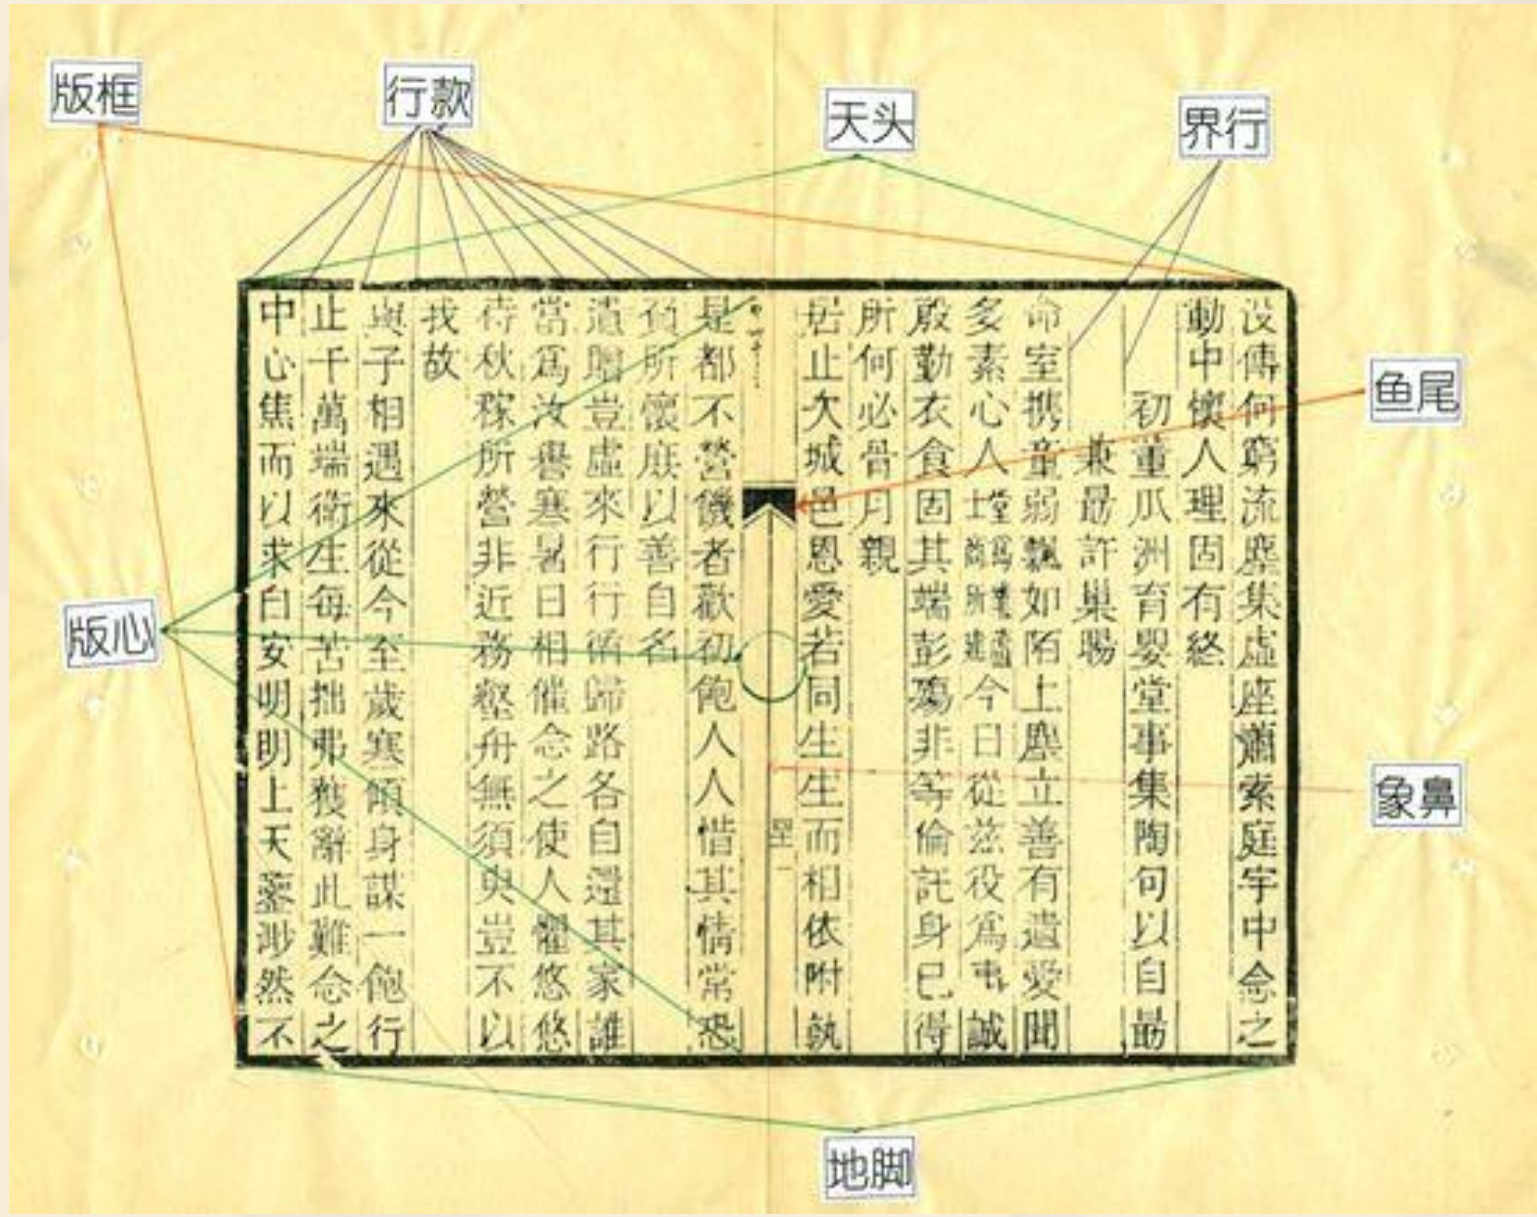 版框
行款
天头
界行
没傳何窮流塵集虛座瀟索庭宇中念之
動中懷人理固有終
初童爪洲育嬰堂事集陶句以自勗
兼勗許巢
命室携童弱飄如陌上塵立善有遺愛聞
多素心人堂爲業鹽士商所建今日從兹役爲事誠
殷勤衣食固其端彭殤非等倫託身已得
所何必骨月親
居止次城邑恩愛若同生生而相依附執
是都不營饑者歡初飽人人惜其情常恐
負所懷庶以善自名
遺贈豈虛來行行循歸路各自還其家誰
當爲汝譽寒暑日相催念之使人懼悠悠
待秋稼所營非近務壑舟無須臾豈不以
我故
與子相遇來從今至歲寒傾身謀一飽行
止千萬端衛生每苦拙弗獲辭此難念之
中心焦而以求自安明明上天鑒渺然不
鱼尾
版心
象鼻
地脚